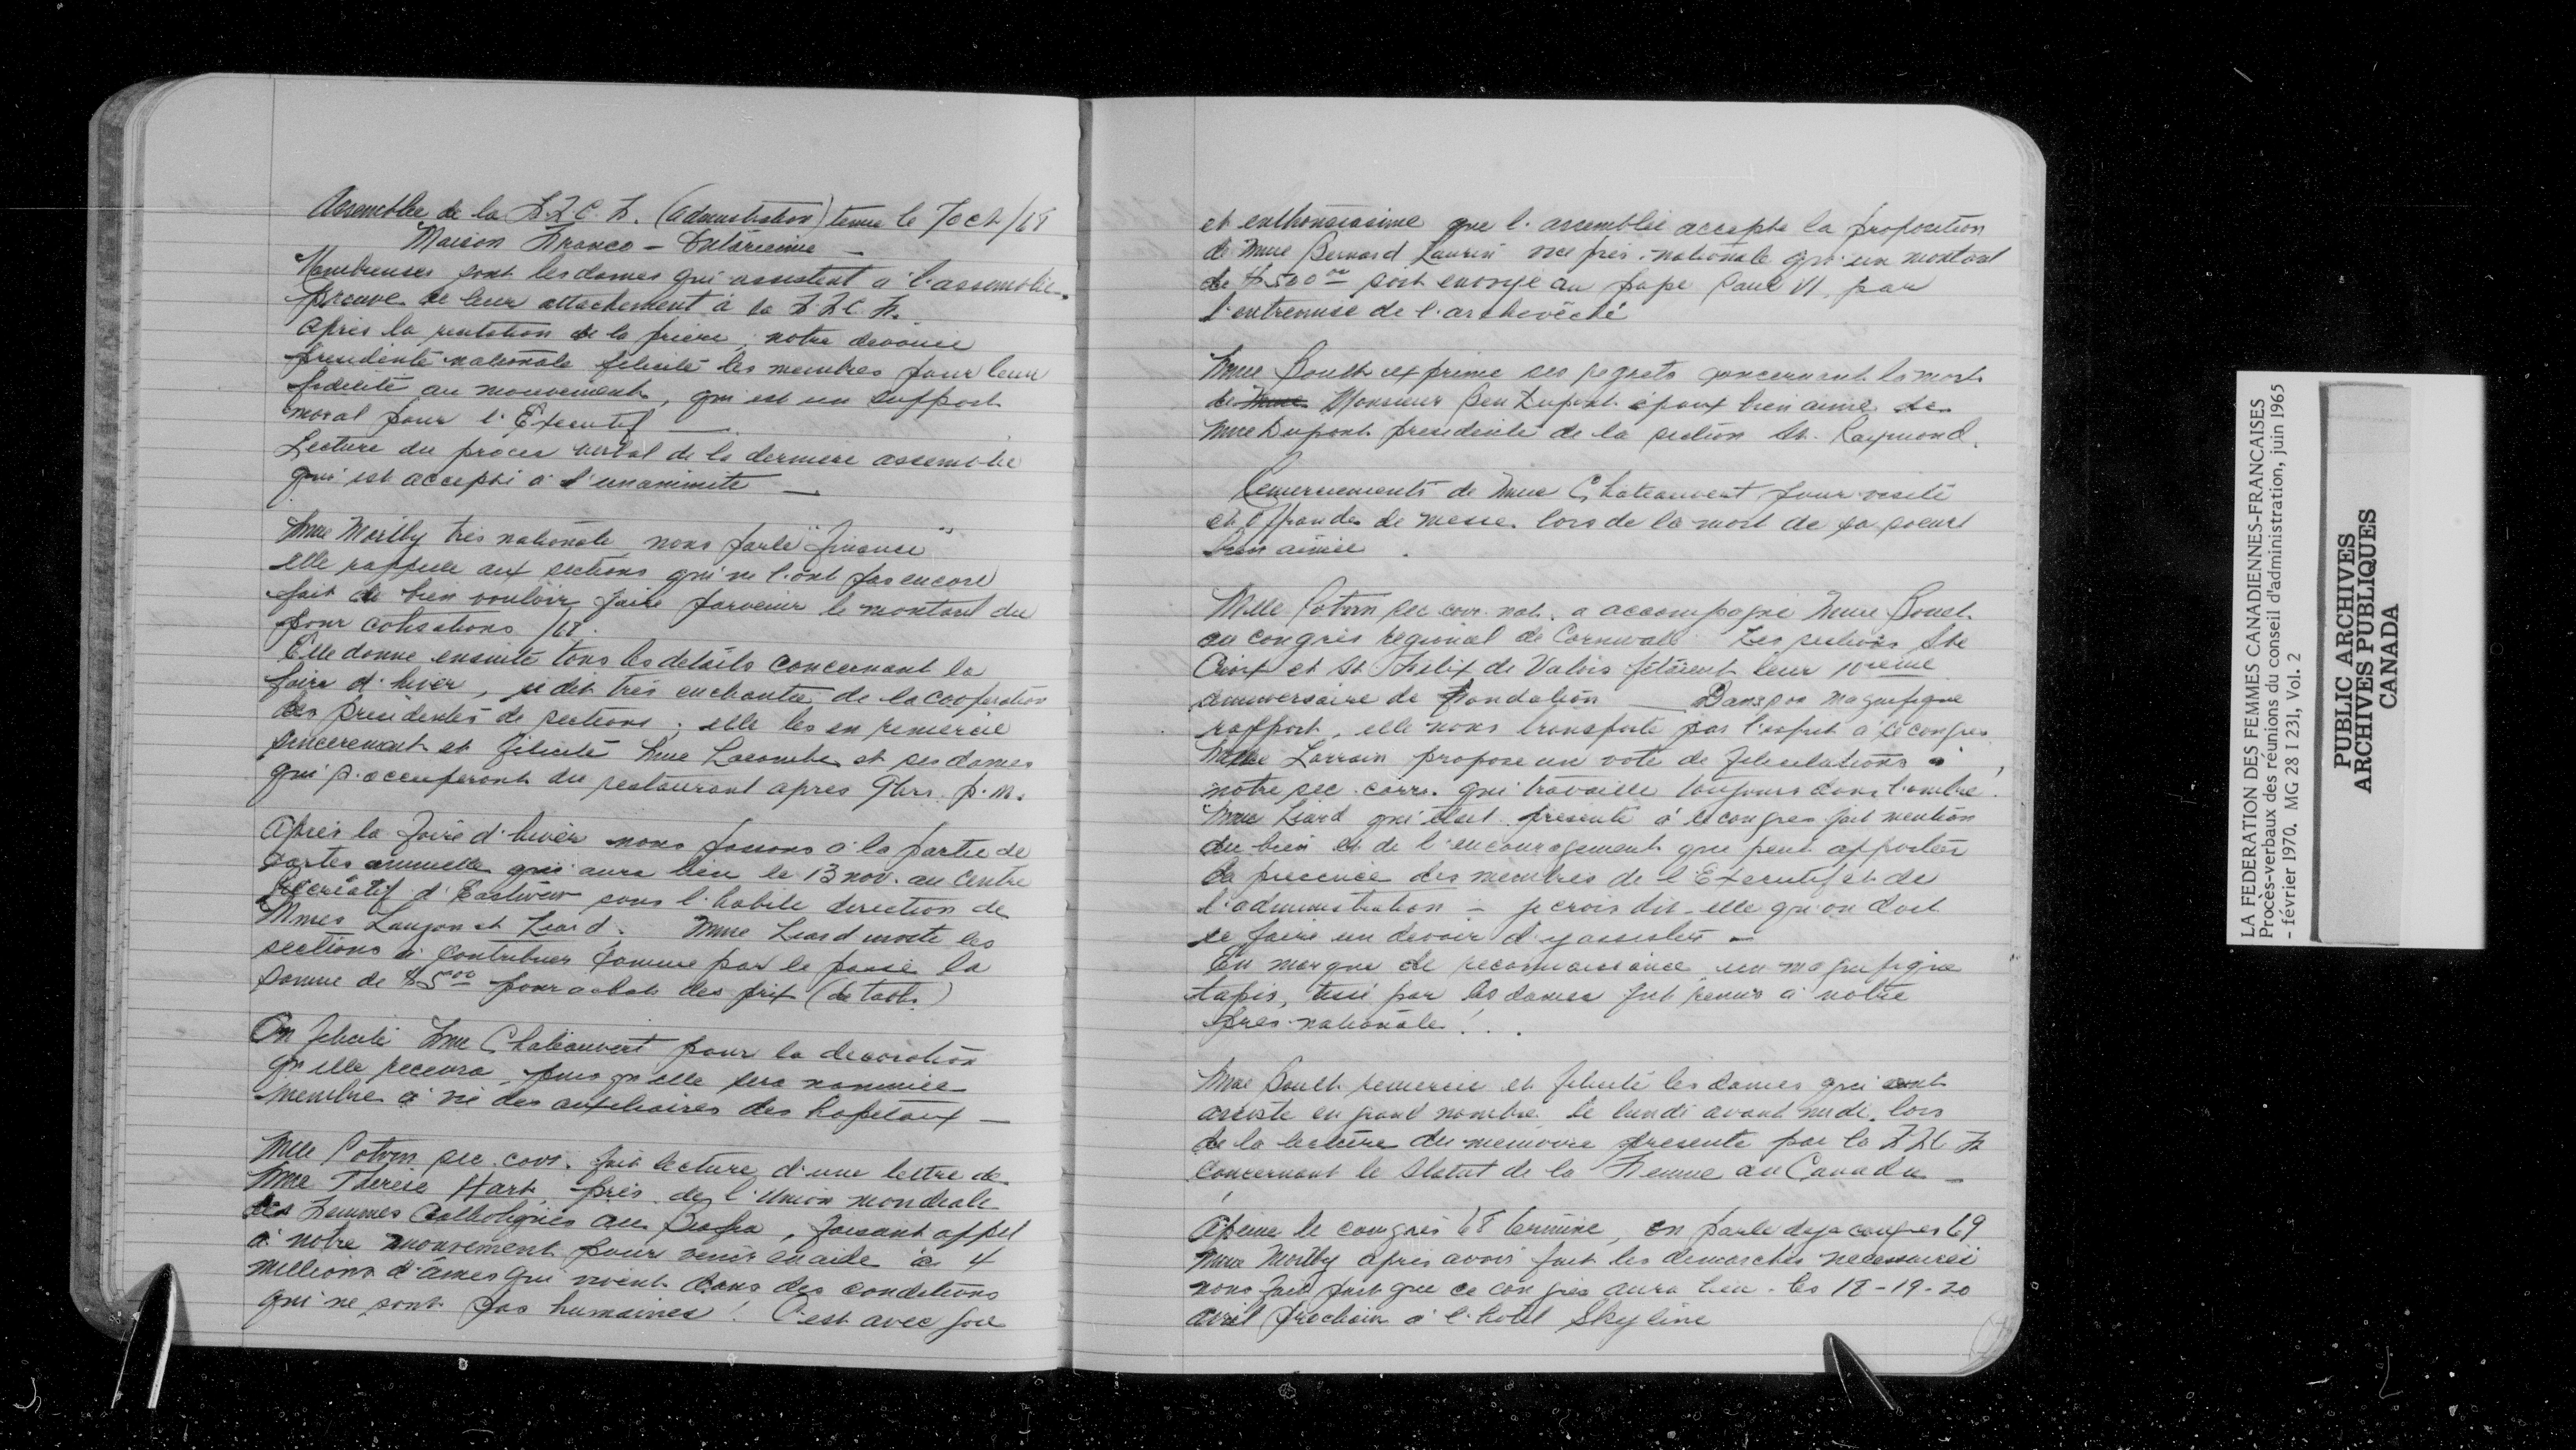 Assemblée de la F.F.C.F. (administration) tenue le 7 Oct/68
Maison Franco-Ontarienne -
Nombreuses sont les dames qui assistent à l'assemblée,
preuve de leur attachement à la F.F.C.F.
Après la recitation de la prière, notre devouée
presidente nationale felicite les membres pour leur
fidelité au mouvement, qui est un support
moral pour l'Executif —
Lecture du proces verbal de la derniere assemblée
qui est accepté à l'unanimité —
Mme Marlby trés nationale nous parle "finance"
elle rappelle aux sections qui ne l'ont pas encore
fait de bien vouloir faire parvenir le montant du
pour cotisations /68.
Elle donne ensuite tous les details concernant la
foire d'hiver, se dit très enchantée de la cooperation
des presidentes de sections; elle les en remercie
sincerement et felicite Mme Lacombe et ses dames
qui s'occuperont du restaurant apres 9hrs p.m.
Après la foire d'hiver nous passons à la partie de
cartes annuelle qui aura lieu le 13 nov. au Centre
Recréatif d'Eastview sous l'habile direction de
Mmes Lauzon et Liard. Mme Liard invite les
sections à contribuer comme par le passé la
somme de $5.00 pour achat des prix (de table)
On felicite Mme Chateauvert pour la decoration
qu'elle recevra puisqu'elle sera nommée
membre à vie des auxiliaires des hopitaux —
Mlle Potvin sec. corr. fait lecture d'une lettre de
Mme Thérèse Hart, prés. de l'Union mondiale
des Femmes Catholiques au Biafra, faisant appel
à notre mouvement pour venir en aide à 4
millions d'âmes qui vivent dans des conditions
qui ne sont pas humaines! C'est avec joie
et enthousiasme que l'assemblée accepte la proposition
de Mme Bernard Laurin vice prés. nationale qu'un montant
de $500.00 soit envoyé au pape Paul VI, par
l'entremise de l'archevêché
Mme Boult exprime ses regrets concernant la mort
de Mme Monsieur Ben Dupont époux bien aimé de
Mme Dupont presidente de la section St. Raymond.
Remerciements de Mme Chateauvert pour visite
et offrandes de messe lors de la mort de sa soeur
bien aimée.
Mlle Potvin sec. corr. nat. a accompagné Mme Boult
au congrès regional de Cornwall. Les sections Ste
Croix et St Felix de Valois fêtaient leur 10ieme
anniversaire de Fondation — Dans son magnifique
rapport, elle nous transporte par l'esprit à ce congres
Mme Lorrain propose un vote de felicitations à
notre sec. corr. qui travaille toujours dans l'ombre.
Mme Liard qui était presente à ce congres fait mention
du bien et de l'encouragement que peut apporter
la presence des membres de l'Executif et de
l'administration - je crois dit-elle qu'on doit
se faire un devoir d'y assister -
En marque de reconnaissance un magnifique
tapis, tissé par les dames fut remis à notre
pres. nationale! . .
Mme Boult remercie et felicite les dames qui ont
assisté en grand nombre le lundi avant midi, lors
de la lecture du memoire presente par la F.F.C.F.
concernant le Statut de la Femme au Canada —
A peine le congrès 68 terminé, on parle deja congres 69
Mme Marlby apres avoir fait les demarches necessaires
nous fait part que ce congrès aura lieu les 18-19-20
avril prochain à l'hotel Skyline
LA FEDERATION DES FEMMES CANADIENNES-FRANCAISES
Procès-verbaux des réunions du conseil d'administration, juin 1965
- février 1970. MG 28 I 231, Vol. 2
PUBLIC ARCHIVES
ARCHIVES PUBLIQUES
CANADA